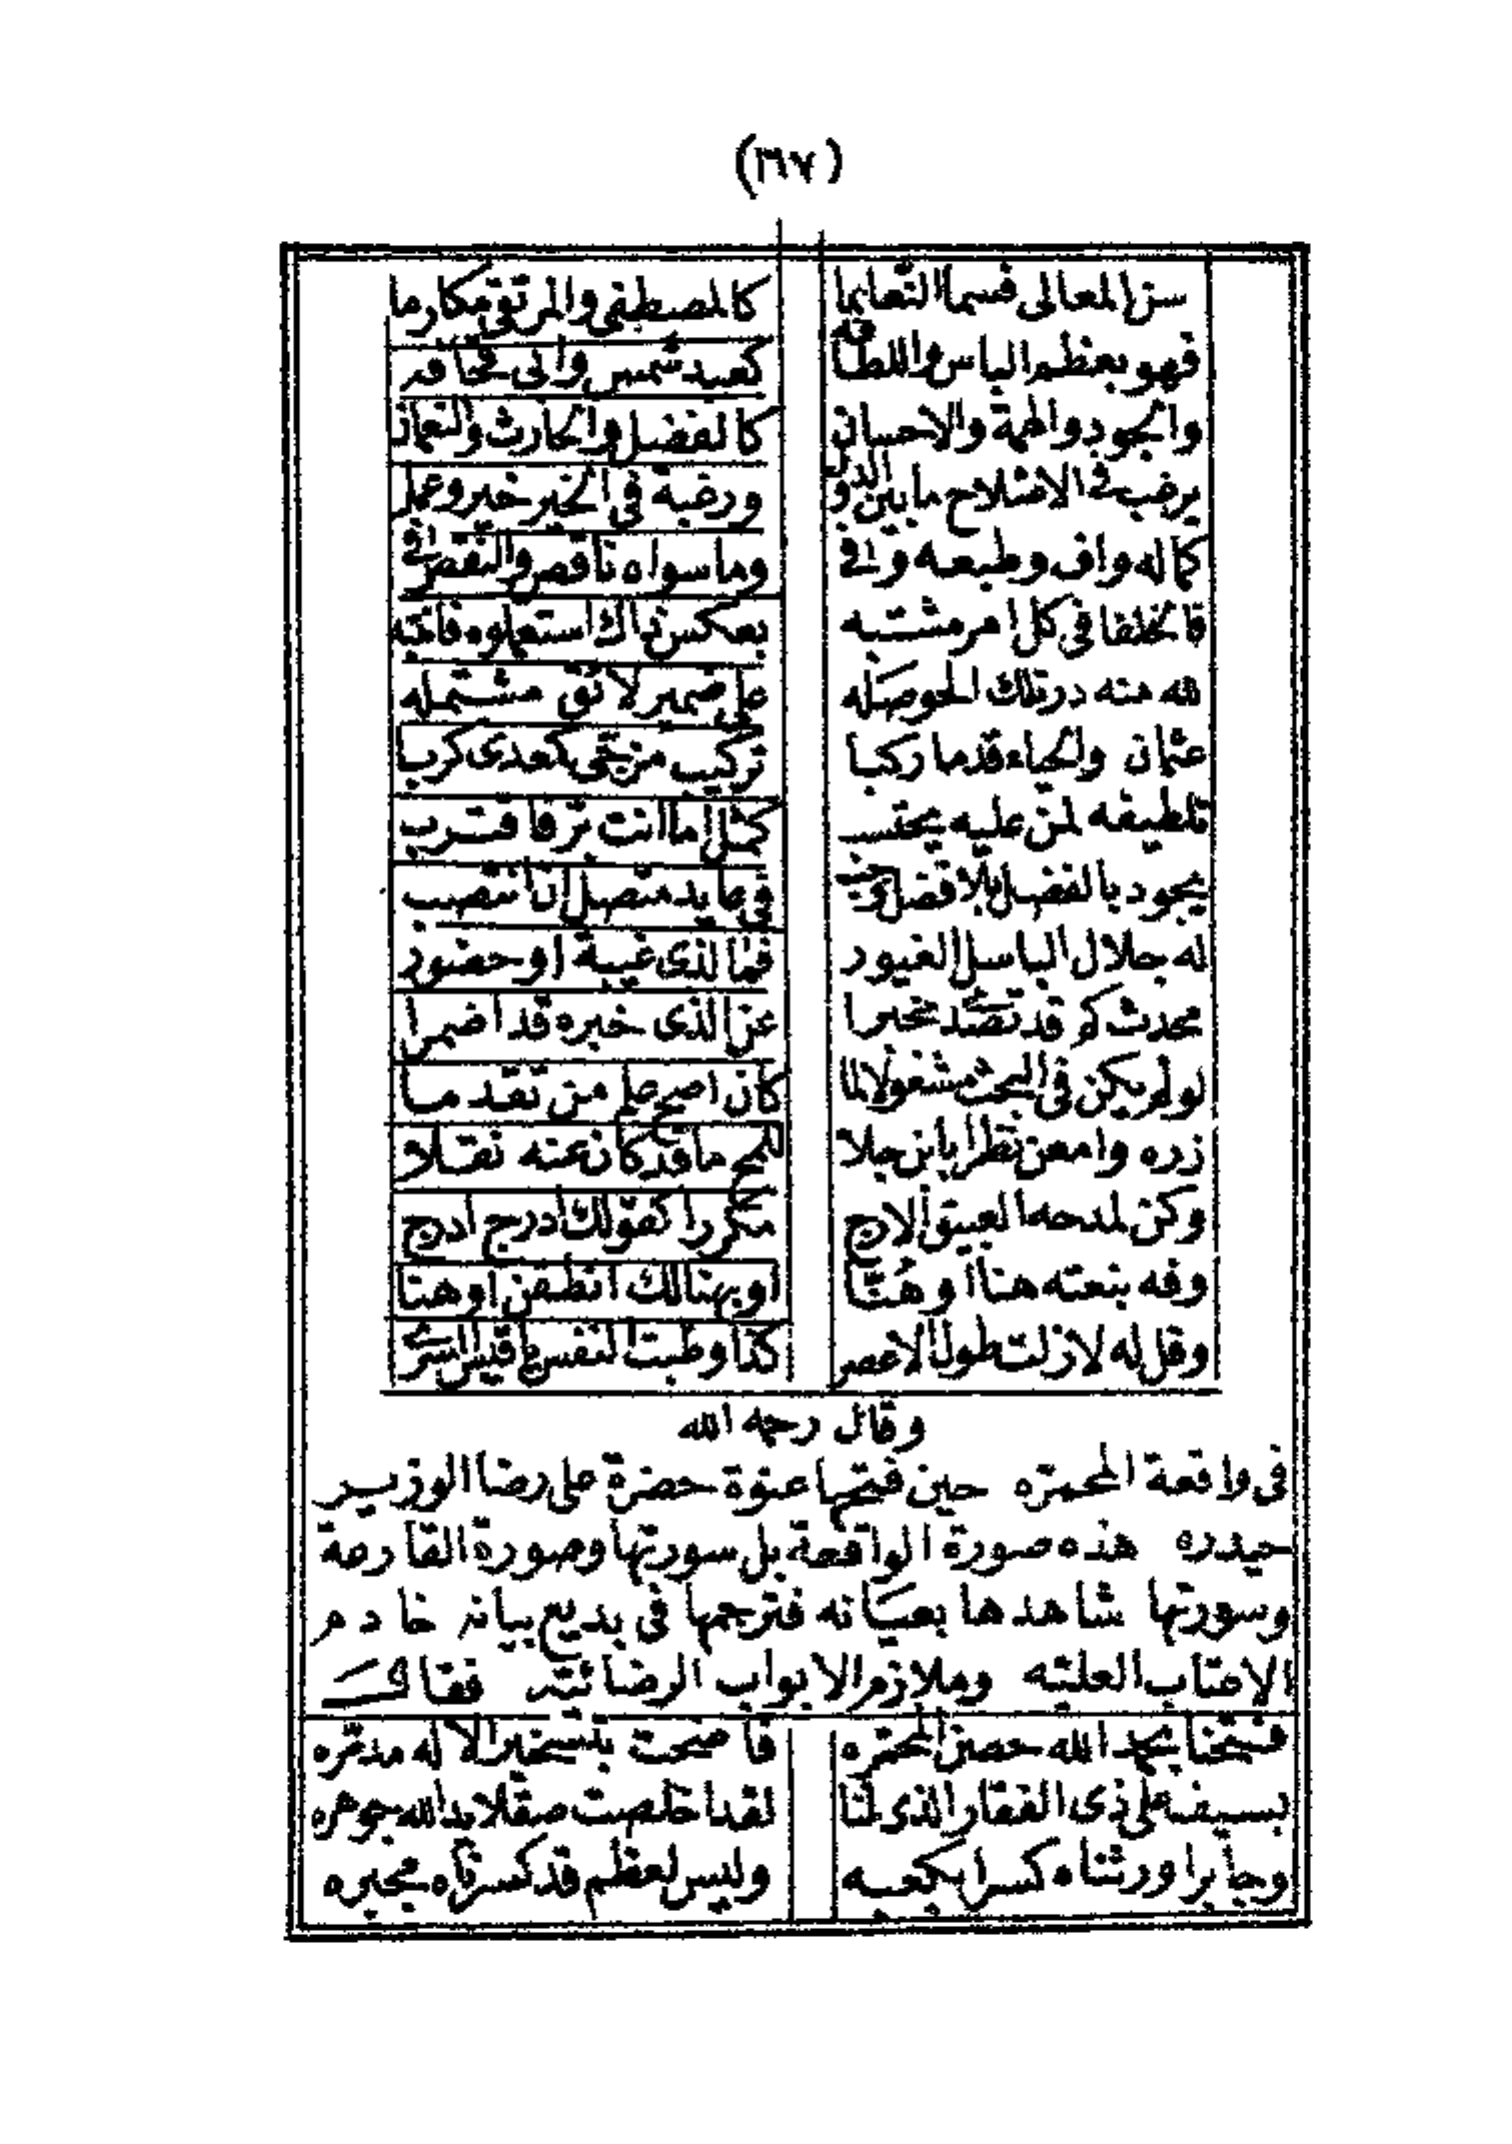 (٣٦٧)
سن المعالى فسما التعايما كالمصطفى والمرتقى مكارما
فهو بعظم الباس واللطافه كعبد شمس وابى قحافه
والجود والهمة والاحسان كالفضل والحارث والنعمان
يرغب فى الاصلاح ما بين الدول ورغبة فى الخير خير وعمل
كماله واف وطبعه وفى وما سواه ناقص والنقص فى
فالخلفا فى كل امر مشتبه بعكس ذاك استعملوه فانتبه
لله منه در تلك الحوصله على ضمير لائق مشتمله
عثمان والحياء قدما ركبا تركيب مزج نحو معدى كربا
تلطيفه لمن عليه يحتسب كمثل اما انت برفا قترب
يجود بالفضل بلا فضل وجب فى ما يد متصل ان انتصب
له جلال الباسل الغيور فما لذى غيبة او حضور
محدث كم قد تصدى مخبرا عن الذى خبره قد اضمرا
لو لم يكن فى البحث مشغولا لما كان اصح علم من تقدما
زره وامعن نظرا يا ابن جلا للمح ما قد كان عنه نقلا
وكن لمدحه العبيق الارج مكررا كقولك ادرج ادرج
وفه بنعته هنا او هُنّا او بهنالك انطقن او هنا
وقل له لازلت طول الاعصر كذا وطبت النفس يا قيس السرى
وقال رحمه الله
فى واقعة المحمره حين فتحها عنوة حضرة على رضا الوزير
حيدره هذه صورة الواقعة بل سورتها وصورة القارعة
وسورتها شاهدها بعيانه فترجمها فى بديع بيانه خادم
الاعتاب العليه وملازم الابواب الرضائيه فقال
فتحنا بحمد الله حصن المحمره فاضحت بتسخير الاله مدمره
بسيف على ذى الفقار الذى لنا لقد اخلصت صقلا يد الله جوهره
وجابرا ورثناه كسرا بكعبه وليس لعظم قد كسرناه مجبره